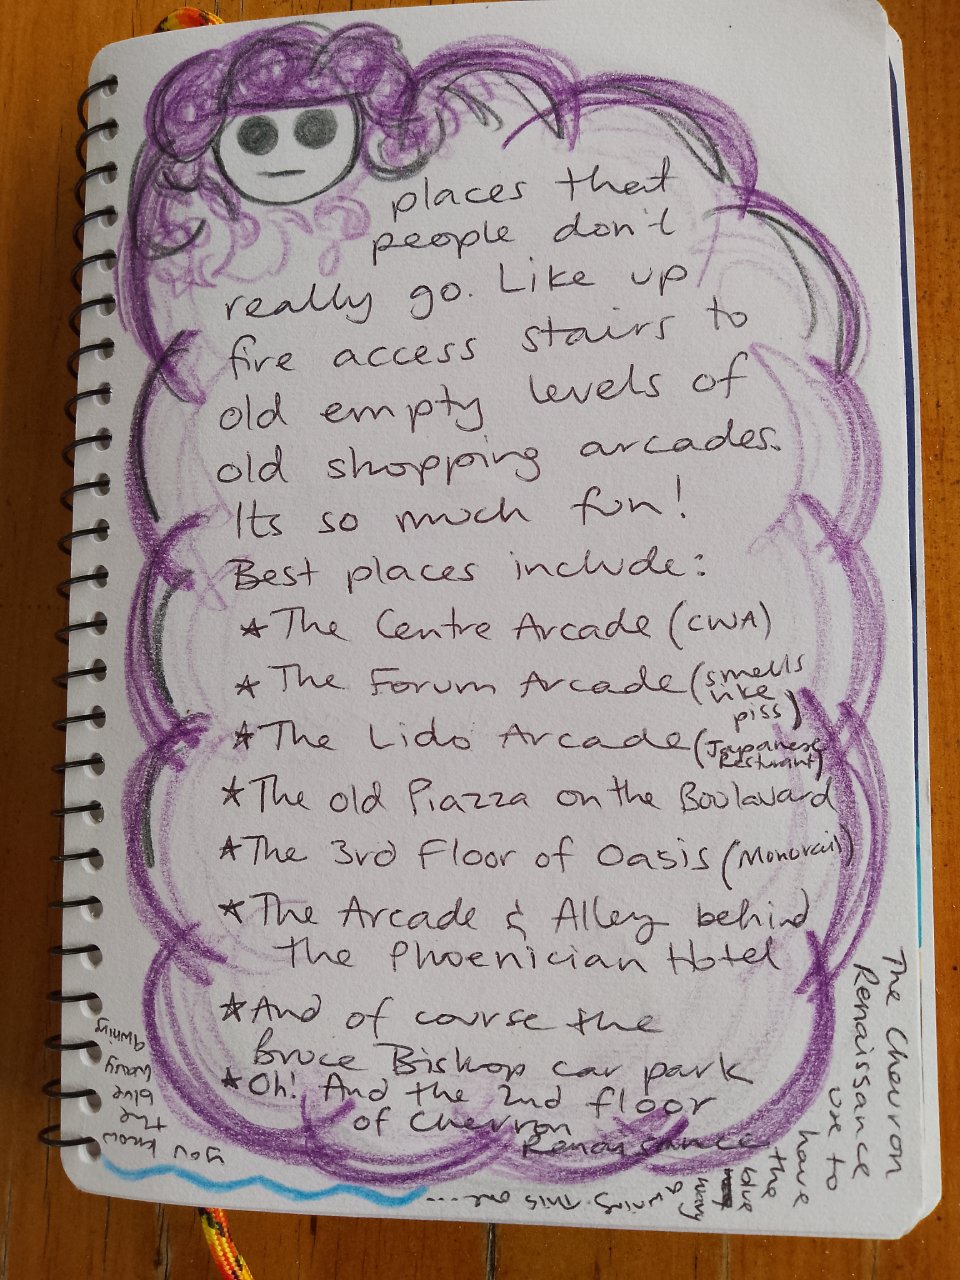 places that
people don't
really go. Like up
fire access stairs to
old empty levels of
old shopping arcades.
Its so much fun!
Best places include:
* The Centre Arcade (CWA)
* The Forum Arcade (smells
like
piss)
* The Lido Arcade (Japanese
Resturant)
* The old Piazza on the Boulavard
* The 3rd Floor of Oasis (Monorail)
* The Arcade & Alley behind
the Phoenician Hotel
* And of course the
Bruce Bishop car park
* Oh! And the 2nd floor
of Chevron
Renaissance
The Chevron
Renaissance
use to
have
the
blue
wavy
awning. This one....
you know
the
blue
wavy
awning